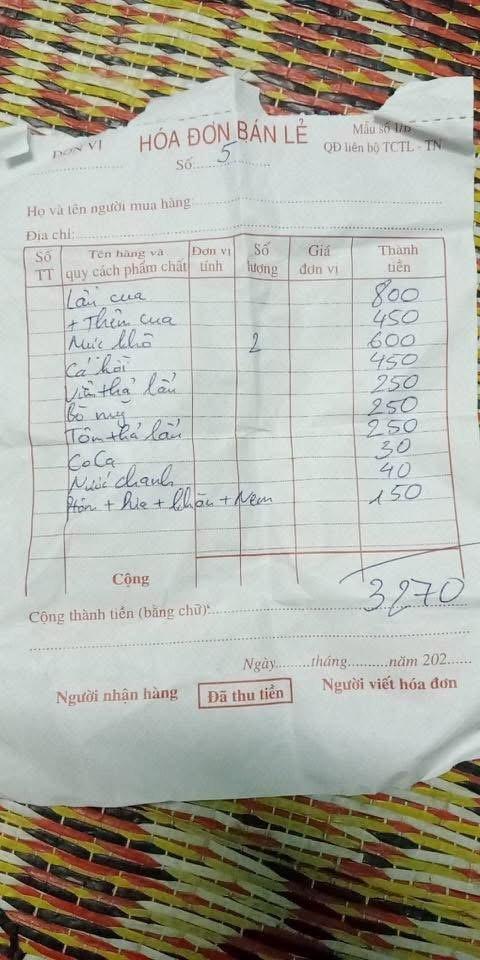 ĐƠN VỊ
HÓA ĐƠN BÁN LẺ
Mẫu số 1/B
QĐ liên bộ TCTL - TN
Số: 5
Họ và tên người mua hàng
Địa chỉ:
Số TT Tên hàng và quy cách phẩm chất Đơn vị tính Số lượng Giá đơn vị Thành tiền
Lẩu cua 800
+ Thêm cua 450
Mực khô 2 600
Cá hồi 450
Viên thả lẩu 250
Bò mỹ 250
Tôm thả lẩu 250
CoCa 30
Nước chanh 40
+ + khăn + Nem 150
Cộng 3270
Cộng thành tiền (bằng chữ):
Ngày tháng năm 202
Người nhận hàng Đã thu tiền Người viết hóa đơn